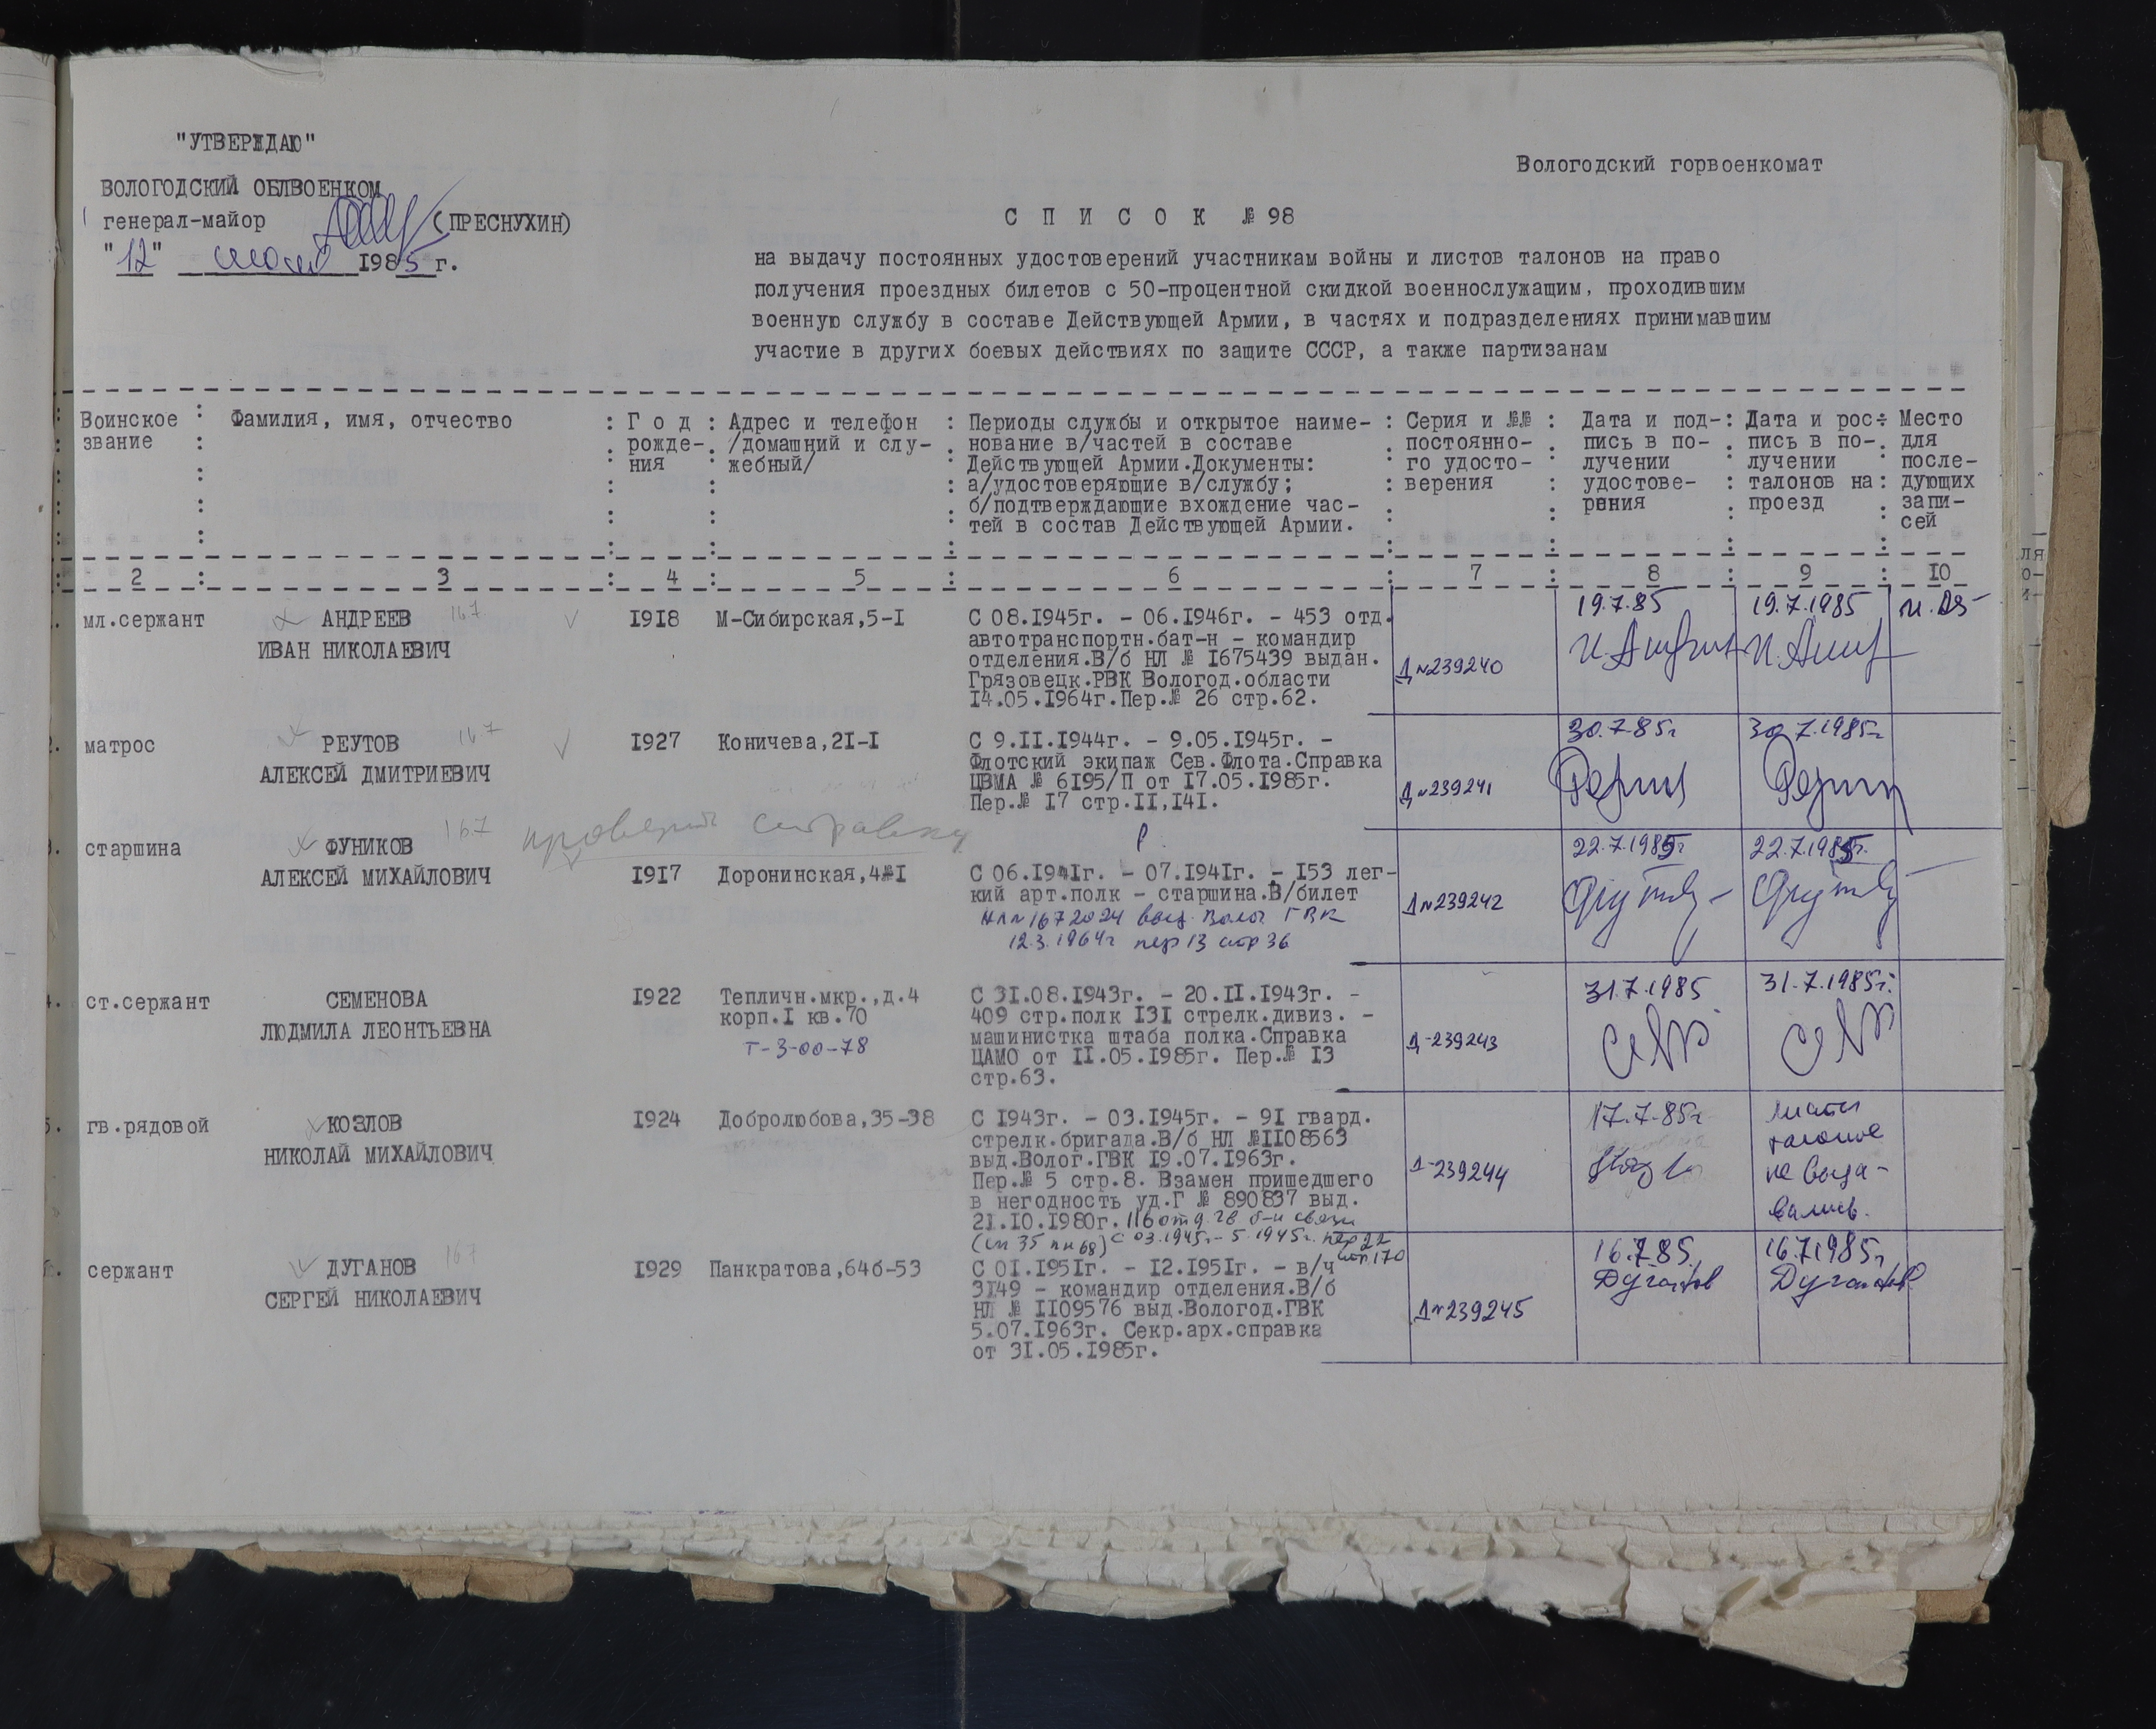 "УТВЕРЖДАЮ"
Вологодский горвоенкомат
ВОЛОГОДСКИЙ ОБЛВОЕНКОМ
генерал-майор (ПРЕСНУХИН)
"12" 1985 г.
С П И С О К № 98
на выдачу постоянных удостоверений участникам войны и листов талонов на право
получения проездных билетов с 50-процентной скидкой военнослужащим, проходившим
военную службу в составе Действующей Армии, в частях и подразделениях принимавшим
участие в других боевых действиях по защите СССР, а также партизанам
Воинское
звание
Фамилия, имя, отчество
Г о д
рожде-
ния
Адрес и телефон
/домашний и слу-
жебный/
Периоды службы и открытое наиме-
нование в/частей в составе
Действующей Армии.Документы:
а/удостоверяющие в/службу;
б/подтверждающие вхождение час-
тей в состав Действующей Армии.
Серия и №№
постоянно-
го удосто-
верения
Дата и под-
пись в по-
лучении
удостове-
рения
Дата и рос-
пись в по-
лучении
талонов на
проезд
Место
для
после-
дующих
запи-
сей
2 3 4 5 6 7 8 9 10
мл.сержант
АНДРЕЕВ 167
ИВАН НИКОЛАЕВИЧ
1918
М-Сибирская,5-1
С 08.1945г. - 06.1946г. - 453 отд.
автотранспортн.бат-н - командир
отделения.В/б НЛ № 1675439 выдан.
Грязовецк.РВК Вологод.области
14.05.1964г.Пер.№ 26 стр.62.
Д №239240
19.7.85
19.7.1985
2. матрос
РЕУТОВ 167
АЛЕКСЕЙ ДМИТРИЕВИЧ
1927
Коничева,21-1
С 9.11.1944г. - 9.05.1945г. -
Флотский экипаж Сев.Флота.Справка
ЦВМА № 6195/П от 17.05.1985г.
Пер.№ 17 стр.11,141.
Д №239241
30.7.85г
30.7.1985г
проверить справку
3. старшина
ФУНИКОВ 167
АЛЕКСЕЙ МИХАЙЛОВИЧ
1917
Доронинская,4-1
С 06.1941г. - 07.1941г. - 153 лег-
кий арт.полк - старшина.В/билет
НЛ №1672024 выд. Волог ГВК
12.3.1964г пер 13 стр 36
Д №239242
22.7.1985г
22.7.1985г.
4. ст.сержант
СЕМЕНОВА
ЛЮДМИЛА ЛЕОНТЬЕВНА
1922
Тепличн.мкр.,д.4
корп.1 кв.70
т-3-00-78
С 31.08.1943г. - 20.11.1943г. -
409 стр.полк 131 стрелк.дивиз. -
машинистка штаба полка.Справка
ЦАМО от 11.05.1985г. Пер.№ 13
стр.63.
Д-239243
31.7.1985
31.7.1985г.
5. гв.рядовой
КОЗЛОВ
НИКОЛАЙ МИХАЙЛОВИЧ
1924
Добролюбова,35-38
С 1943г. - 03.1945г. - 91 гвард.
стрелк.бригада.В/б НЛ №1108563
выд.Волог.ГВК 19.07.1963г.
Пер.№ 5 стр.8. Взамен пришедшего
в негодность уд.Г № 890837 выд.
21.10.1980г. 116 отд. гв б-н связи
(сп 35 пн 68) с 03.1945г.- 5.1945г. пер 22
стр 170
Д-239244
17.7.85г
листы
талонов
не выда-
вались.
сержант
ДУГАНОВ 167
СЕРГЕЙ НИКОЛАЕВИЧ
1929
Панкратова,64б-53
С 01.1951г. - 12.1951г. - в/ч
3149 - командир отделения.В/б
НЛ № 1109576 выд.Вологод.ГВК
5.07.1963г. Секр.арх.справка
от 31.05.1985г.
Д №239245
16.7.85.
Дуганов
16.7.1985г
Дуганов